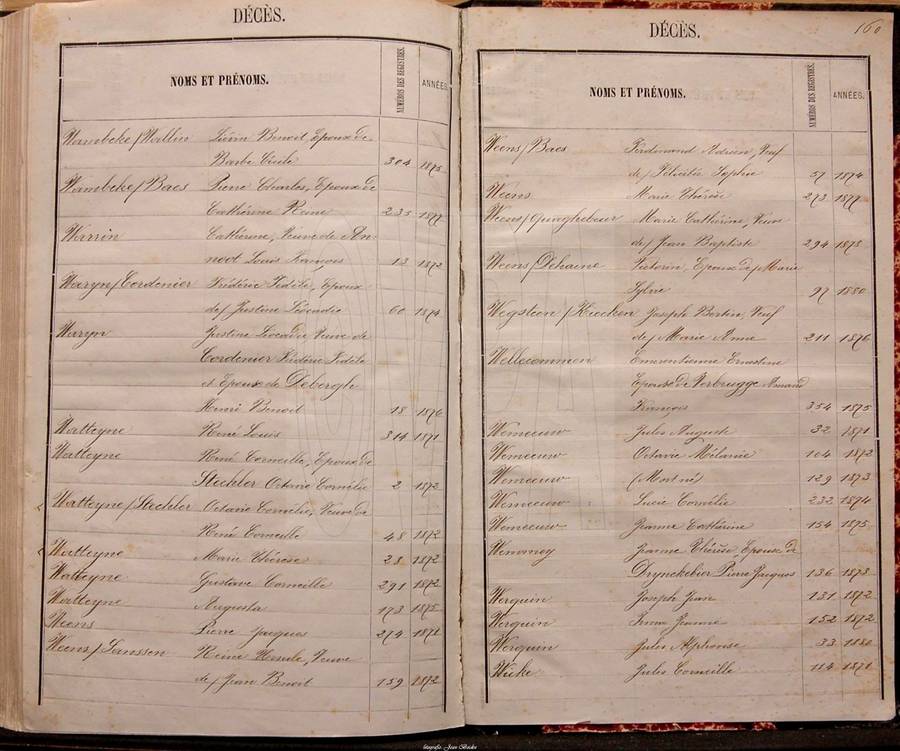 DÉCÈS.
NOMS ET PRÉNOMS.
NUMÉROS DES REGISTRES.
ANNÉES.
Wambeke / Wallin Liévin Benoit, Epoux de
Barbe Cécile 304 1875
Wambeke / Baes Pierre Charles, Epoux de
Cathérine Reine 235 1877
Warrin Cathérine, Veuve de An-
noot Louis François 13 1872
Waryn / Cordenier Frédéric Fidèle, Epoux
de / Justine Léocadie 60 1874
Waryn Justine Léocadie, Veuve de
Cordenier Frédéric Fidèle
et Epouse de Debergh
Henri Benoit 18 1876
Watteyne René Louis 314 1871
Watteyne René Corneille, Epoux de
Stechler Octavie Cornélie 2 1872
Watteyne / Stechler Octavie Cornélie, Veuve de
René Corneille 48 1872
Watteyne Marie Thérèse 28 1872
Watteyne Gustave Corneille 291 1872
Watteyne Augusta 173 1875
Weens Pierre Jacques 274 1871
Weens / Janssen Reine Ursule, Veuve
de / Jean Benoit 159 1872
DÉCÈS.
160
NOMS ET PRÉNOMS.
NUMÉROS DES REGISTRES.
ANNÉES.
Weens / Baes Ferdinand Adrien, Veuf
de / Félicité Sophie 57 1874
Weens Marie Thérèse 273 1877
Weens / Quaghebeur Marie Cathérine, Veuve
de / Jean Baptiste 294 1878
Weens / Dehaene Victorin, Epoux de / Marie
Sylvie 97 1880
Wegsteen / Kiecken Joseph Bertin, Veuf
de / Marie Anne 211 1876
Wellecommen Emerentienne Ernestine
Epouse de Verbrugge Amand
François 354 1875
Wemeeuw Jules Auguste 32 1871
Wemeeuw Octavie Mélanie 104 1872
Wemeeuw (Mort né) 129 1873
Wemeeuw Lucie Cornélie 232 1874
Wemeeuw Jeanne Cathérine 154 1875
Jeanne Thérèse, Epouse de
Drynckebier Pierre Jacques 136 1873
Werquin Joseph Jean 131 1872
Werquin Irma Jeanne 152 1872
Werquin Jules Alphonse 33 1880
Wicke Jules Corneille 114 1871
fotografie Jean Beckx